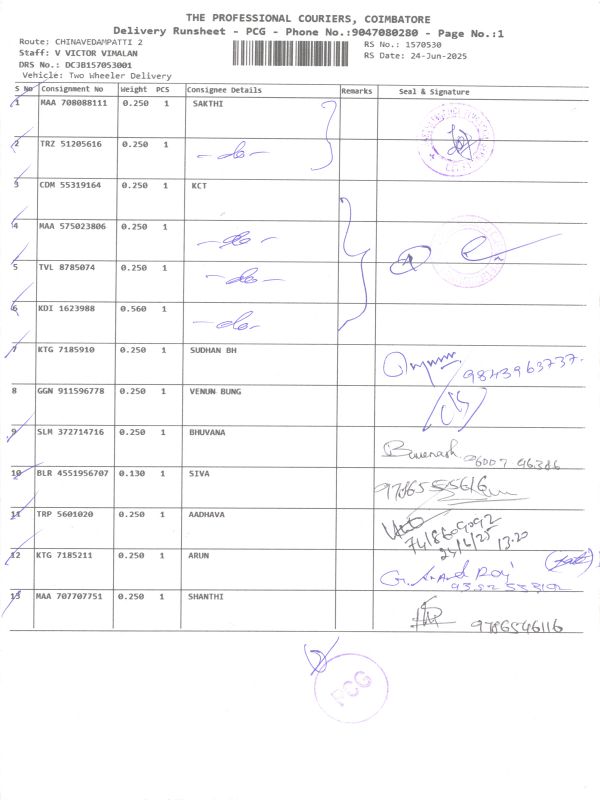 THE PROFESSIONAL COURIERS, COIMBATORE
Delivery Runsheet - PCG - Phone No.:9047080280 - Page No.:1
Route: CHINAVEDAMPATTI 2
RS No.: 1570530
Staff: V VICTOR VIMALAN
RS Date: 24-Jun-2025
DRS No.: DCJB157053001
Vehicle: Two Wheeler Delivery
S No Consignment No Weight PCS Consignee Details Remarks Seal & Signature
1 MAA 708088111 0.250 1 SAKTHI
2 TRZ 51205616 0.250 1 -do-
3 CDM 55319164 0.250 1 KCT
4 MAA 575023806 0.250 1 -do-
5 TVL 8785074 0.250 1 -do-
6 KDI 1623988 0.560 1 -do-
7 KTG 7185910 0.250 1 SUDHAN BH 9843963737.
8 GGN 911596778 0.250 1 VENUN BUNG
9 SLM 372714716 0.250 1 BHUVANA 96386
10 BLR 4551956707 0.130 1 SIVA
11 TRP 5601020 0.250 1 AADHAVA
7418609092
24/6/25 13.20
12 KTG 7185211 0.250 1 ARUN G. Anand Raj
13 MAA 707707751 0.250 1 SHANTHI 9786546116
PCG